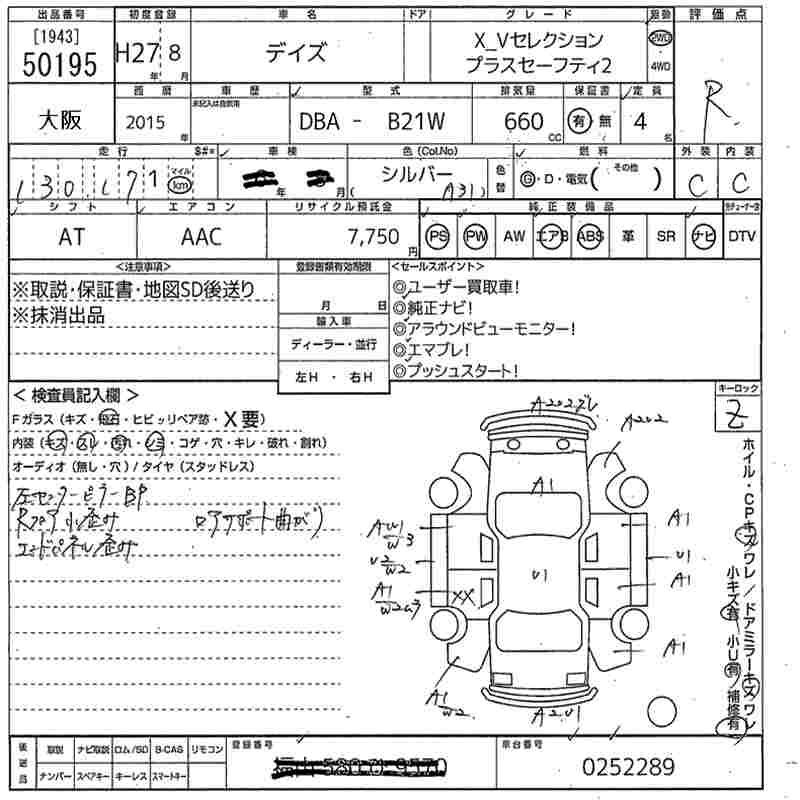 出品番号 初度登録 車名 ドア グレード 駆動 評価点
[1943]
50195 H27年 8月 デイズ X_Vセレクション
プラスセーフティ2 2WD
4WD R
西暦 車歴 型式 排気量 保証書 定員
大阪 2015年 未記入は自家用 DBA - B21W 660CC 有 無 4名
走行 $#* 車検 色(Col.No) 燃料 外装 内装
130,171 マイル km 年 月 シルバー (A31) 色替 G・D・電気 その他( ) C C
シフト エアコン リサイクル預託金 純正装備品
AT AAC 7,750円 PS PW AW エアB ABS 革 SR ナビ DTV
<注意事項> 登録書類有効期限 <セールスポイント>
※取説・保証書・地図SD後送り 月 日 ◎ユーザー買取車!
※抹消出品 輸入車 ◎純正ナビ!
ディーラー・並行 ◎アラウンドビューモニター!
左H・右H ◎エマブレ!
◎プッシュスタート!
<検査員記入欄> キーロック
Fガラス(キズ・飛石・ヒビッリペア跡・X要) Z
内装(キズ・スレ・汚れ・シミ・コゲ・穴・キレ・破れ・割れ)
オーディオ(無し・穴)/タイヤ(スタッドレス)
左センターピラーBP
Rフロア小歪み ロアサポート曲がり
エンドパネル歪み
A2
A1
A1
U1
A1
U1
A1
A1
U2
W2
A1
A1
W2
A2U1
ホイル・CPキズワレ/ドアミラーキズワレ
小キズ有 小U有 補修有
後送品 取説 ナビ取説 ロム/SD B-CAS リモコン 登録番号 車台番号
ナンバー スペアキー キーレス スマートキー 0252289